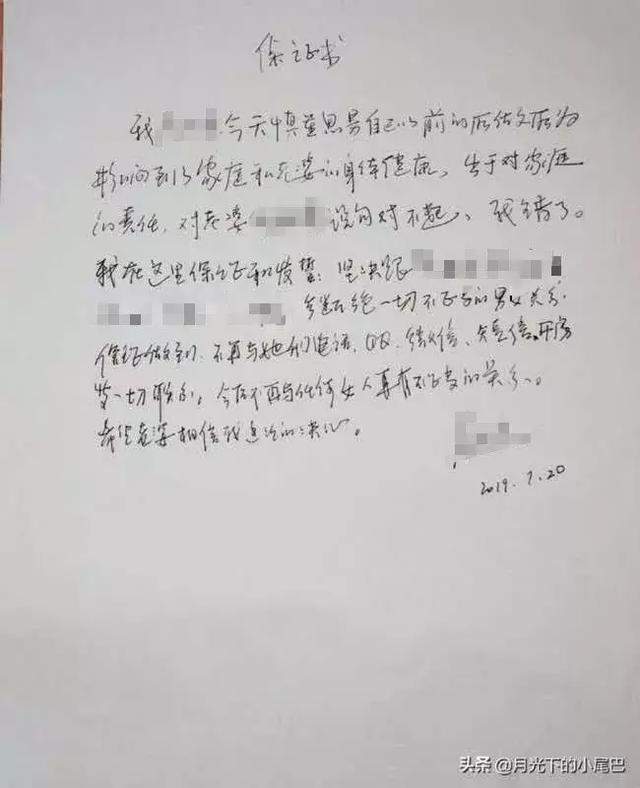 保证书
我 今天慎重思量自己以前的所做之所为
影响到了家庭和老婆的身体健康，出于对家庭
的责任，对老婆 说句对不起、我错了。
我在这里保证和发誓：坚决跟
断绝一切不正当的男女关系.
保证做到、不再与她们电话、QQ、微信、短信、开房
等一切联系，今后不再与任何女人再有不正当的关系。
希望老婆相信我这次的决心。
2019.7.20
头条 @月光下的小尾巴